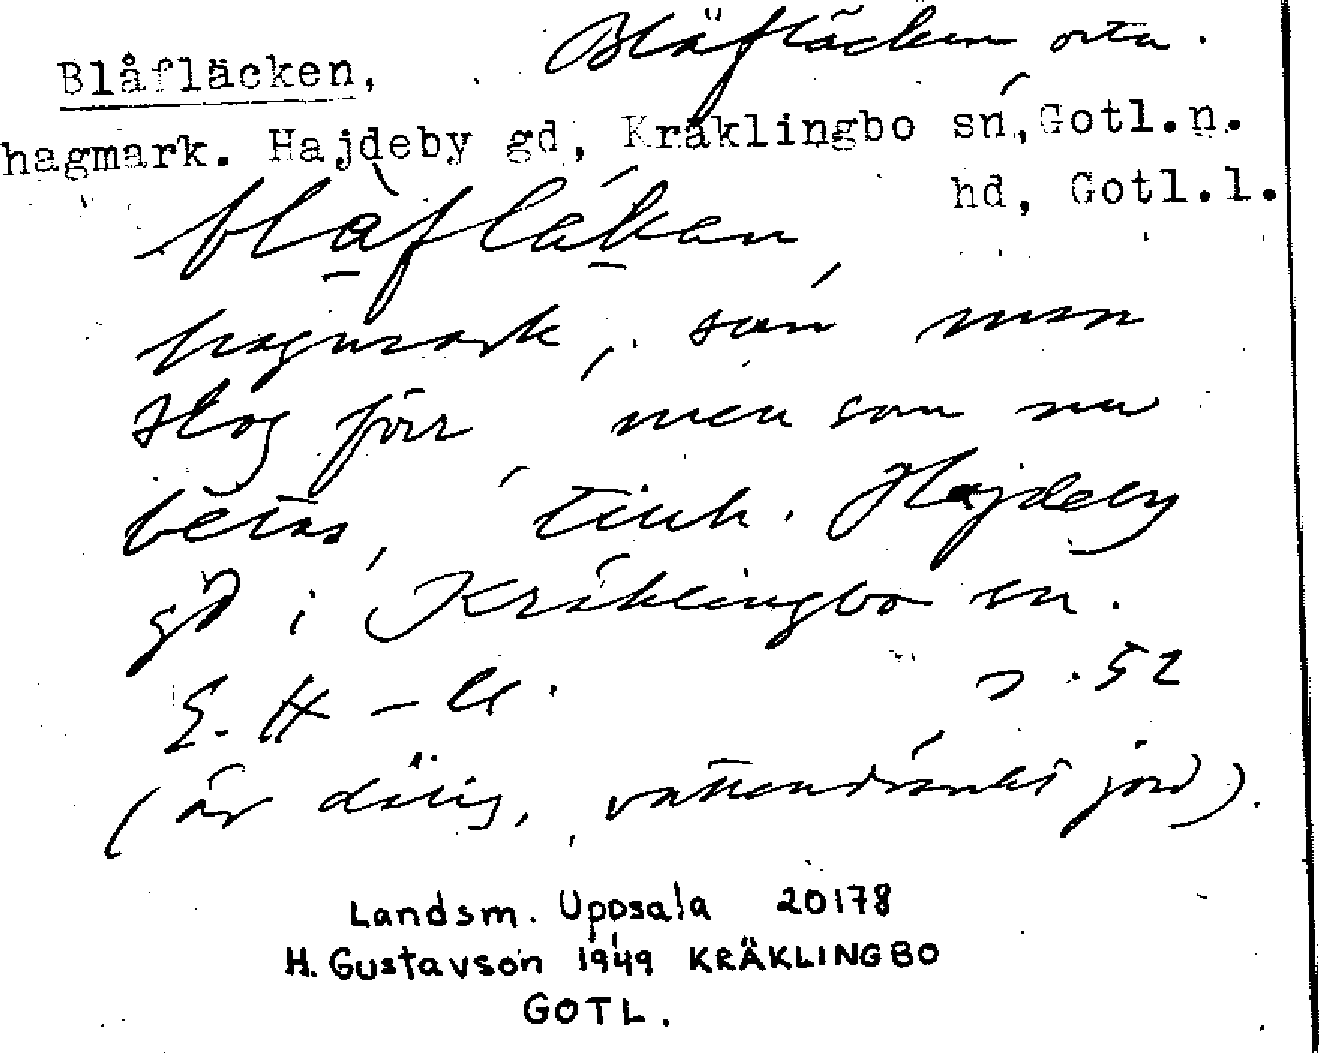 Blåfläcken orta.
Blåfläcken,
hagmark. Hajdeby gd, Kräklingbo sn, Gotl.n.
hd, Gotl.l.
blåfläkan
hagmark, som man
slog förr men som nu
betas, Hajdeby
gd i Kräklingbo sn.
E. H-n. s. 52
(är dålig, vattendränkt jord).
Landsm. Uppsala 20178
H. Gustavson 1949 KRÄKLINGBO
GOTL.